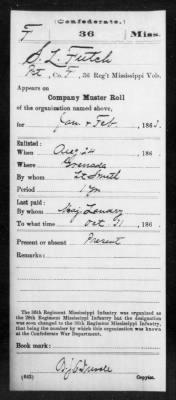 (Confederate.)
F 36 Miss.
S. L. Futch
Pvt, Co. F, 36 Reg't Mississippi Vols.
Appears on
Company Muster Roll
of the organization named above,
for Jan & Feb, 1863.
Enlisted:
When Aug 24, 186
Where Grenada
By whom Lt Smith
Period 1 yr
Last paid:
By whom Maj
To what time Oct 31, 186
Present or absent Present
Remarks:
The 36th Regiment Mississippi Infantry was organized as
the 28th Regiment Mississippi Infantry but the designation
was soon changed to the 36th Mississippi Infantry,
that being the number by which this organization was known
at the Confederate War Department.
Book mark:
(642) Copyist.